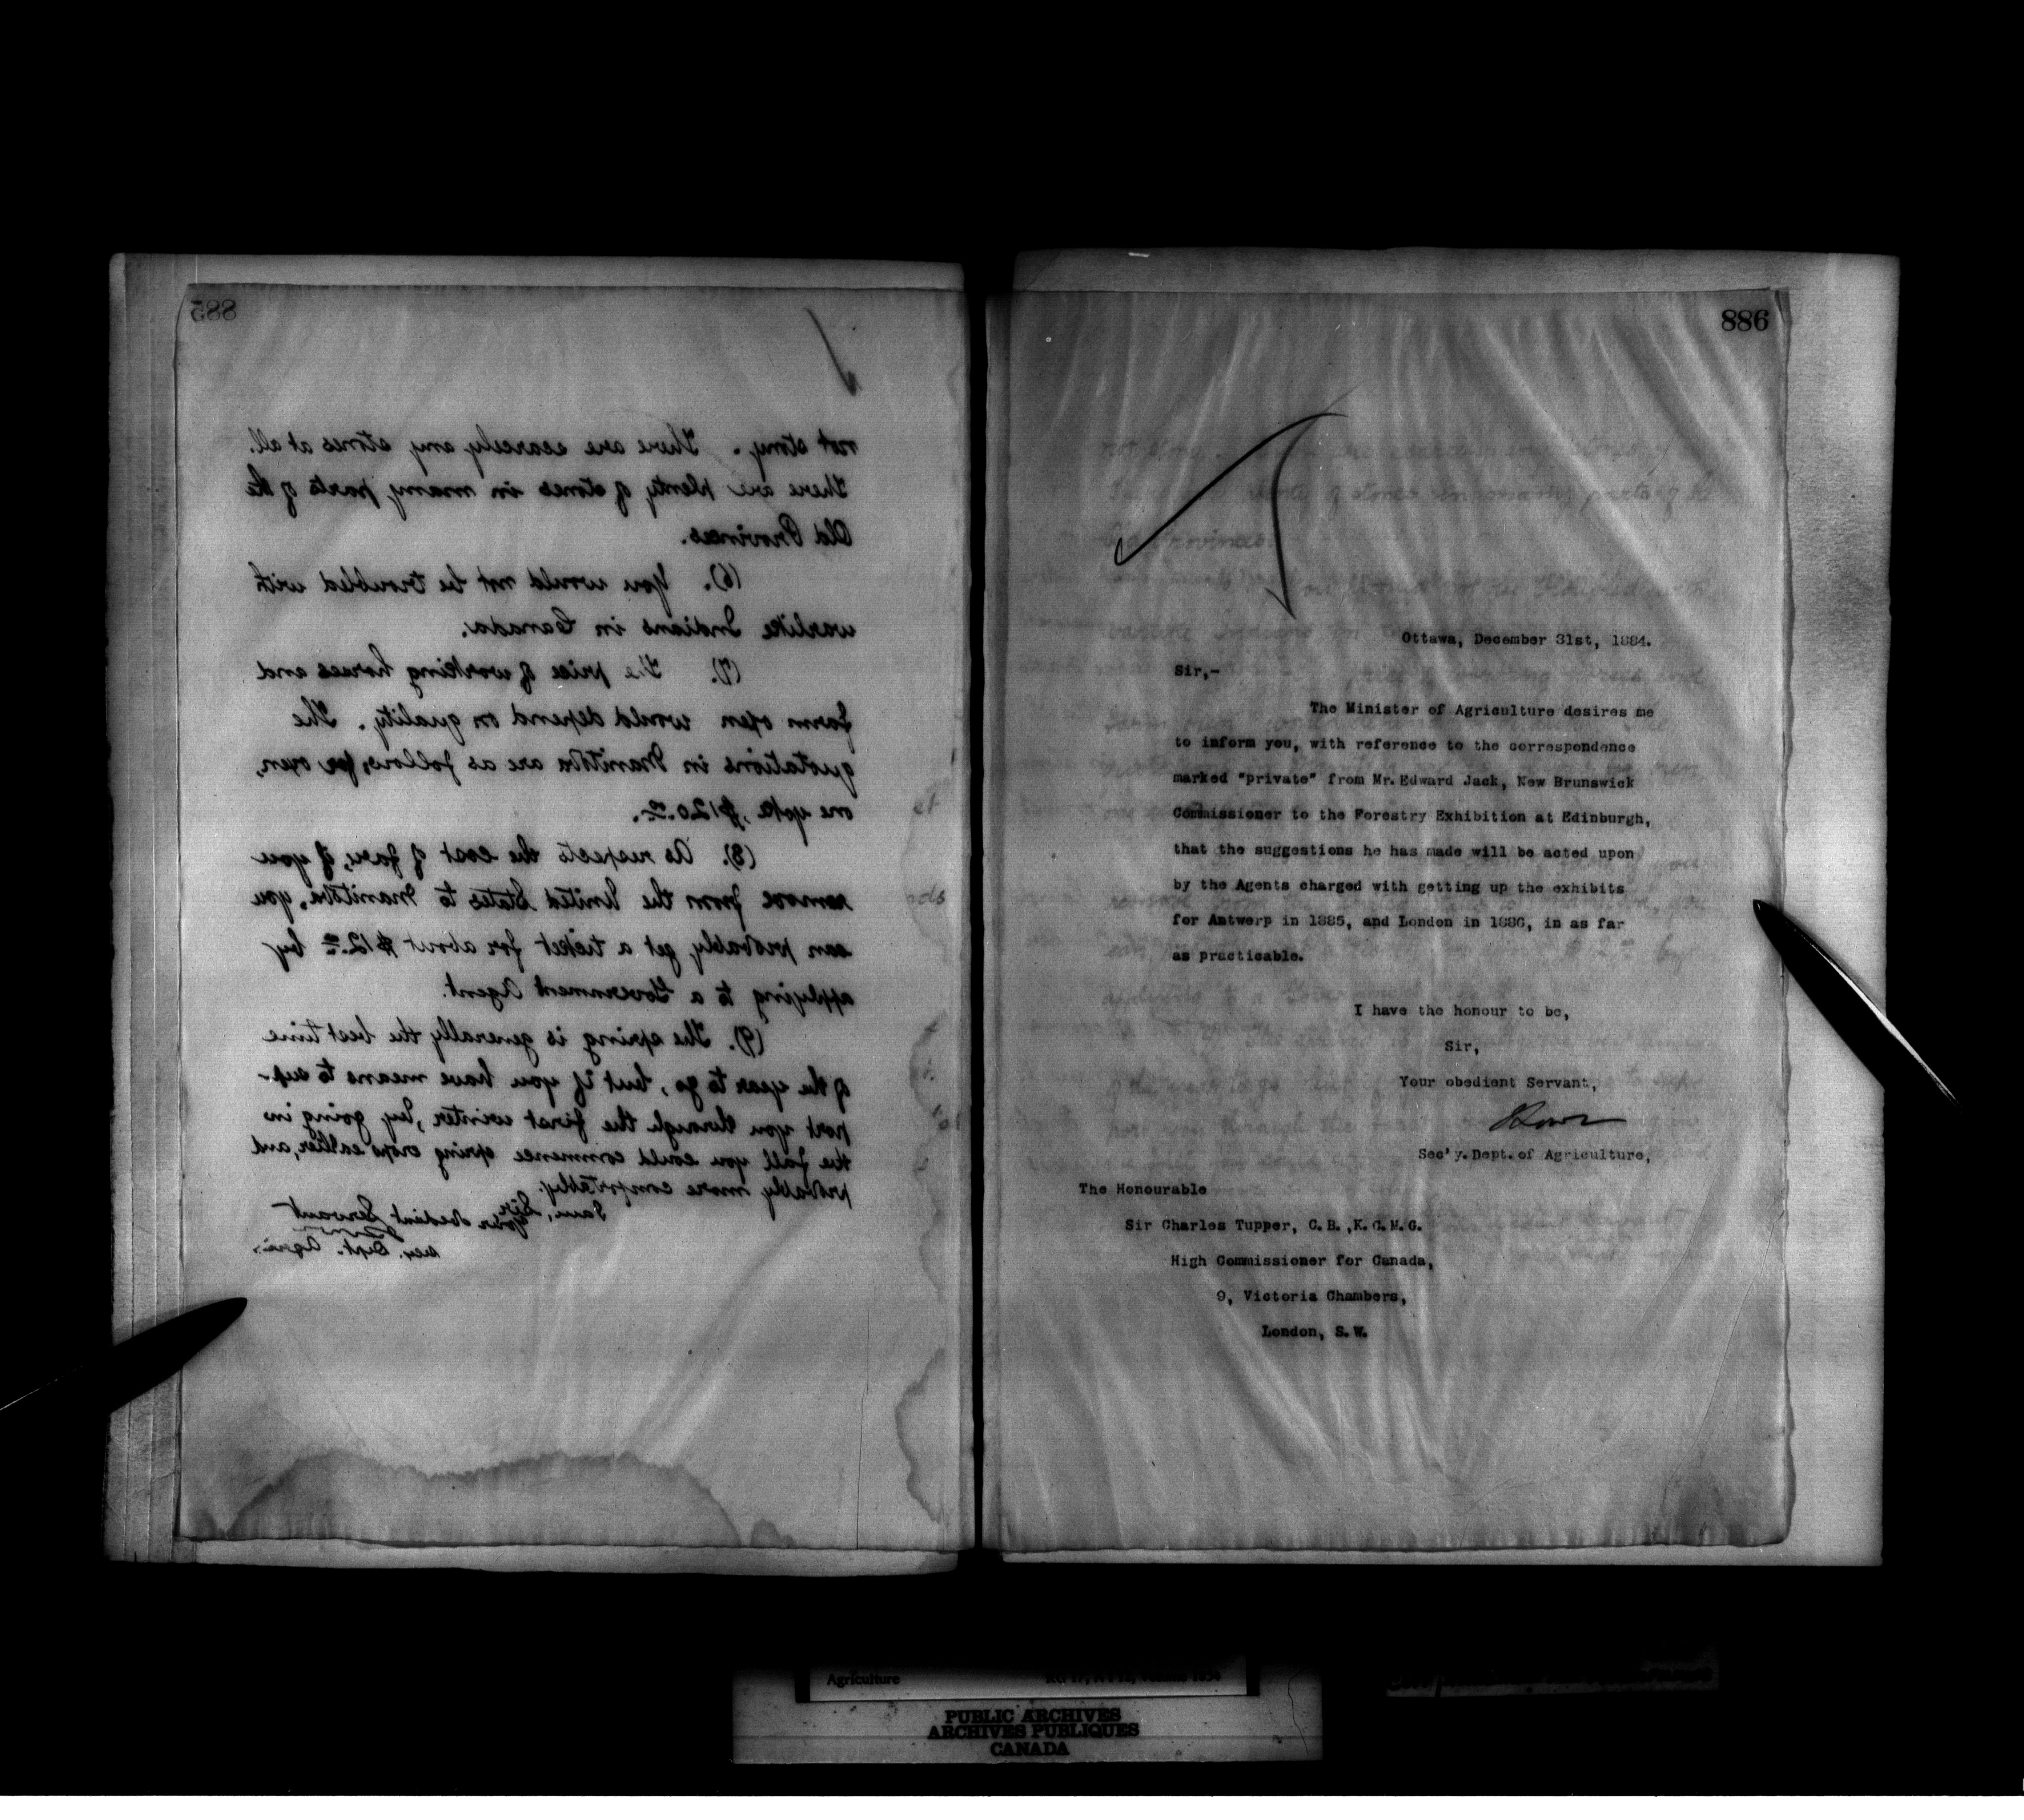 885
not stony. There are scarcely any stones at all.
There are plenty of stones in many parts of the
Old Provinces.
(6). You would not be troubled with
warlike Indians in Canada.
(7). The price of working horses and
farm oxen would depend on quality. The
quotations in Manitoba are as follows, for oxen,
one yoke, $120.00.
(8). As respects the cost of fare, if you
remove from the United States to Manitoba, you
can probably get a ticket for about $12.00 by
applying to a Government Agent.
(9). The spring is generally the best time
of the year to go, but if you have means to sup-
port you through the first winter, by going in
the fall you could commence spring crops earlier, and
probably more comfortably.
I am, Sir,
Your obedient Servant
Secy. Dept. Agric.
886
Ottawa, December 31st, 1884.
Sir,-
The Minister of Agriculture desires me
to inform you, with reference to the correspondence
marked "private" from Mr. Edward Jack, New Brunswick
Commissioner to the Forestry Exhibition at Edinburgh,
that the suggestions he has made will be acted upon
by the Agents charged with getting up the exhibits
for Antwerp in 1885, and London in 1886, in as far
as practicable.
I have the honour to be,
Sir,
Your obedient Servant,
Sec'y. Dept. of Agriculture,
The Honourable
Sir Charles Tupper, C.B.,K.C.M.G.
High Commissioner for Canada,
9, Victoria Chambers,
London, S.W.
Agriculture
PUBLIC ARCHIVES
ARCHIVES PUBLIQUES
CANADA